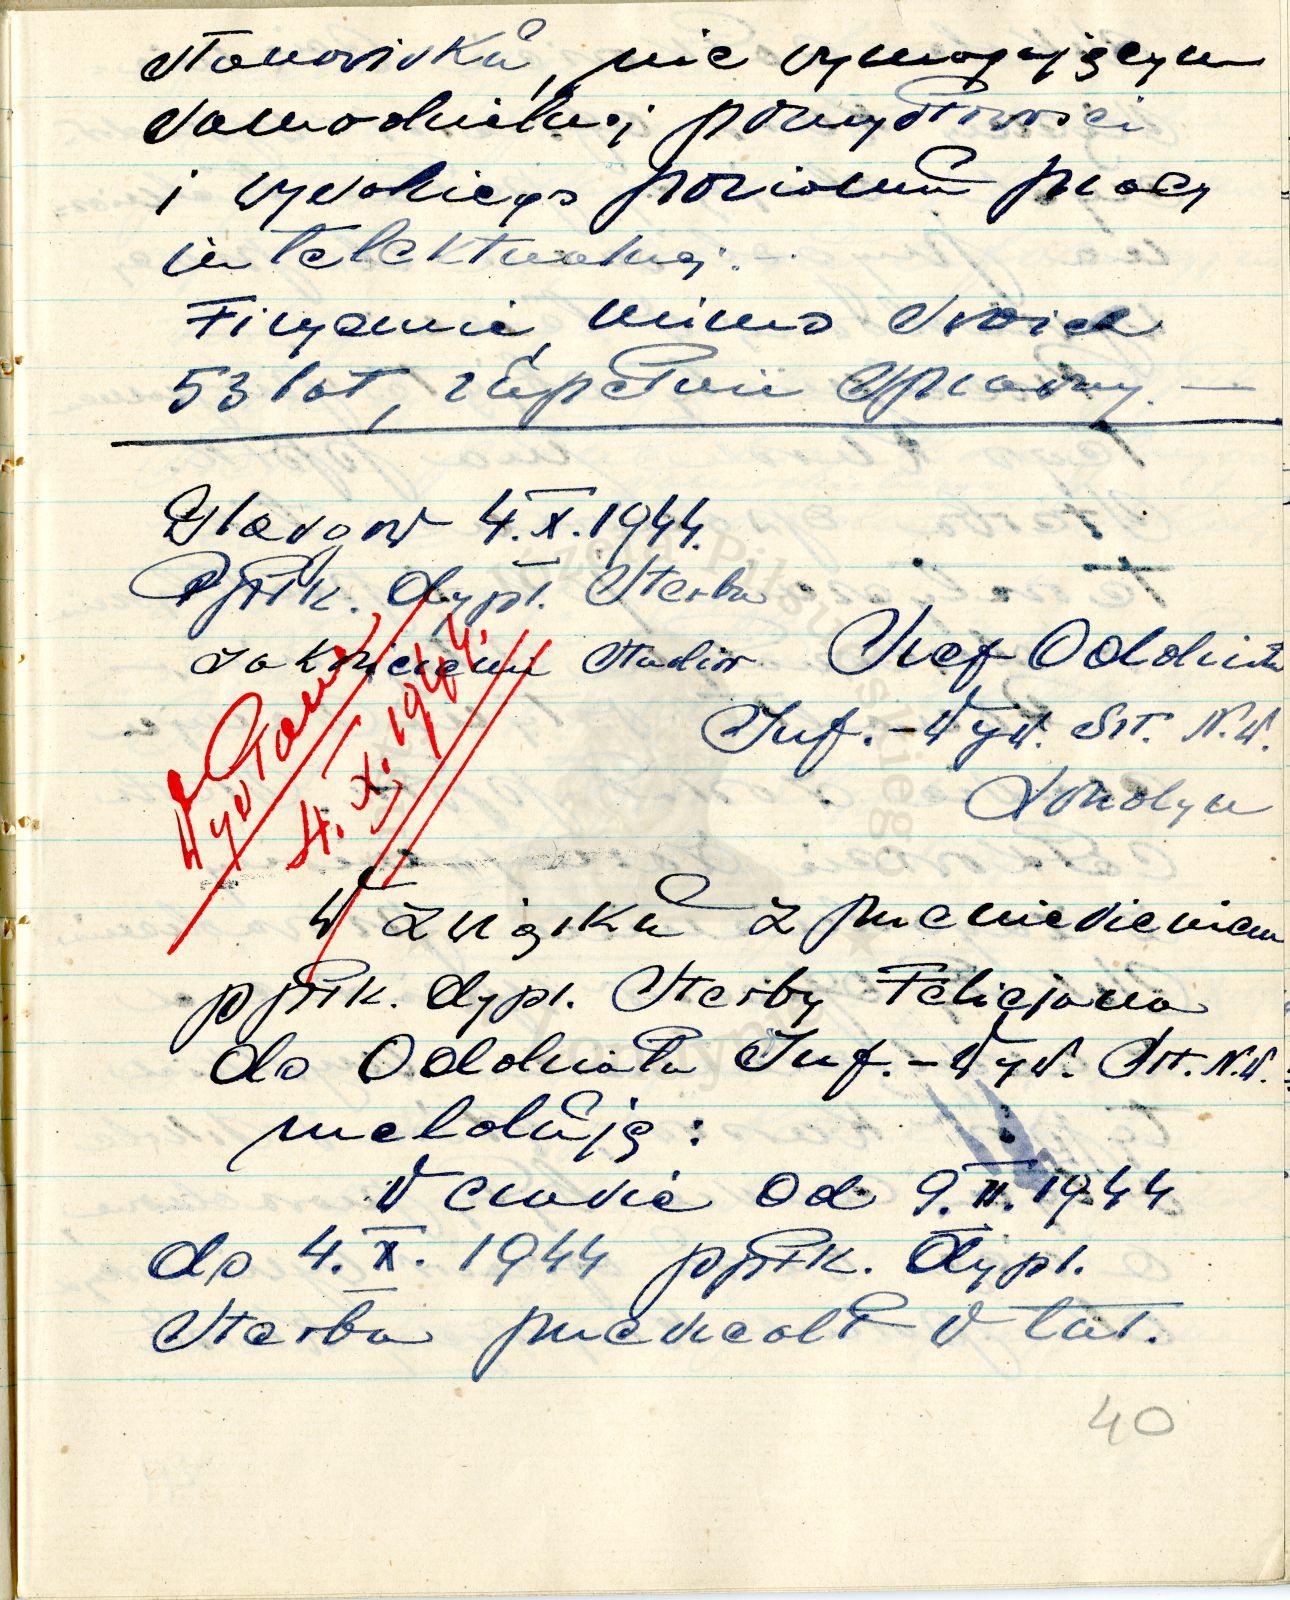 stanowisku, nie wymagającym
samodzielnej pomysłowości
i wysokiego poziomu pracy
intelektualnej. -
Fizycznie, mimo swoich
53 lat, zupełnie sprawny. —
Glasgow 4.X.1944.
Ppłk. dypl. Sterba
zakończenie studiów
Szef Oddziału
Inf.-Wyw. Szt. N.W.
Londyn
Wysłano
4.X.1944.
W związku z przeniesieniem
ppłk. dypl. Sterby Felicjana
do Oddziału Inf.-Wyw. Szt. N.W.
melduję:
W czasie od 9.II.1944
do 4.X.1944 ppłk. dypl.
Sterba przeszedł w tut.
40